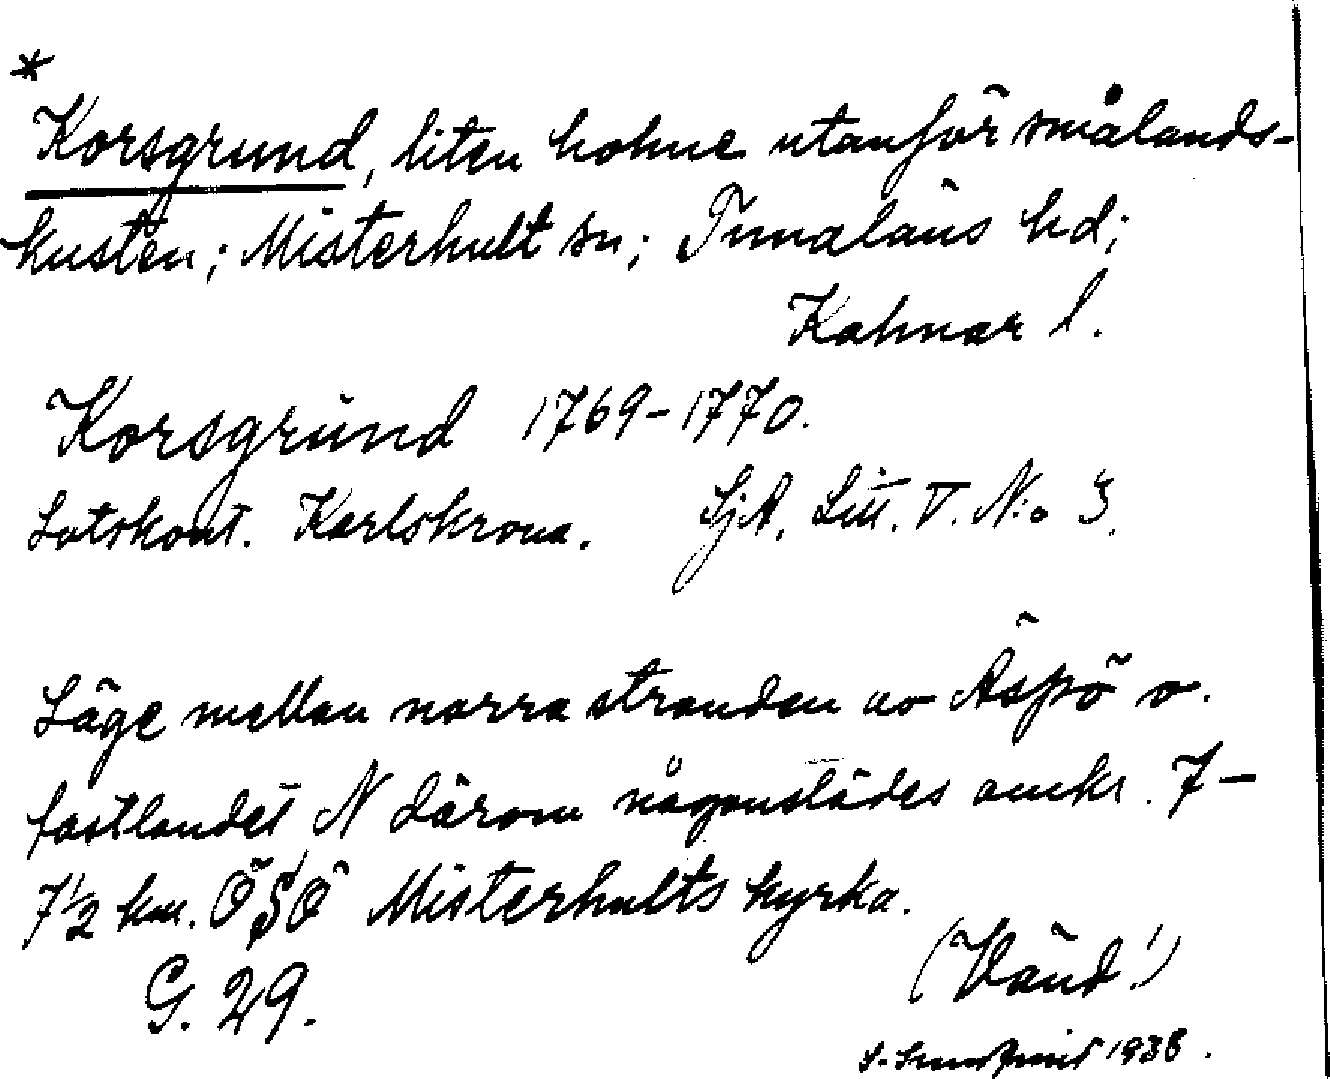 *
Korsgrund, liten holme utanför smålands-
kusten; Misterhult sn; Tunaläns hd;
Kalmar l.
Korsgrund 1769-1770.
Lotskont. Karlskrona. SjA. Litt. V. N:o 3.
Läge mellan norra stranden av Äspö o.
fastlandet N därom någonstädes omkr. 7-
7 1/2 km. ÖSÖ Misterhults kyrka.
G. 29.
(Vänd!)
1938.